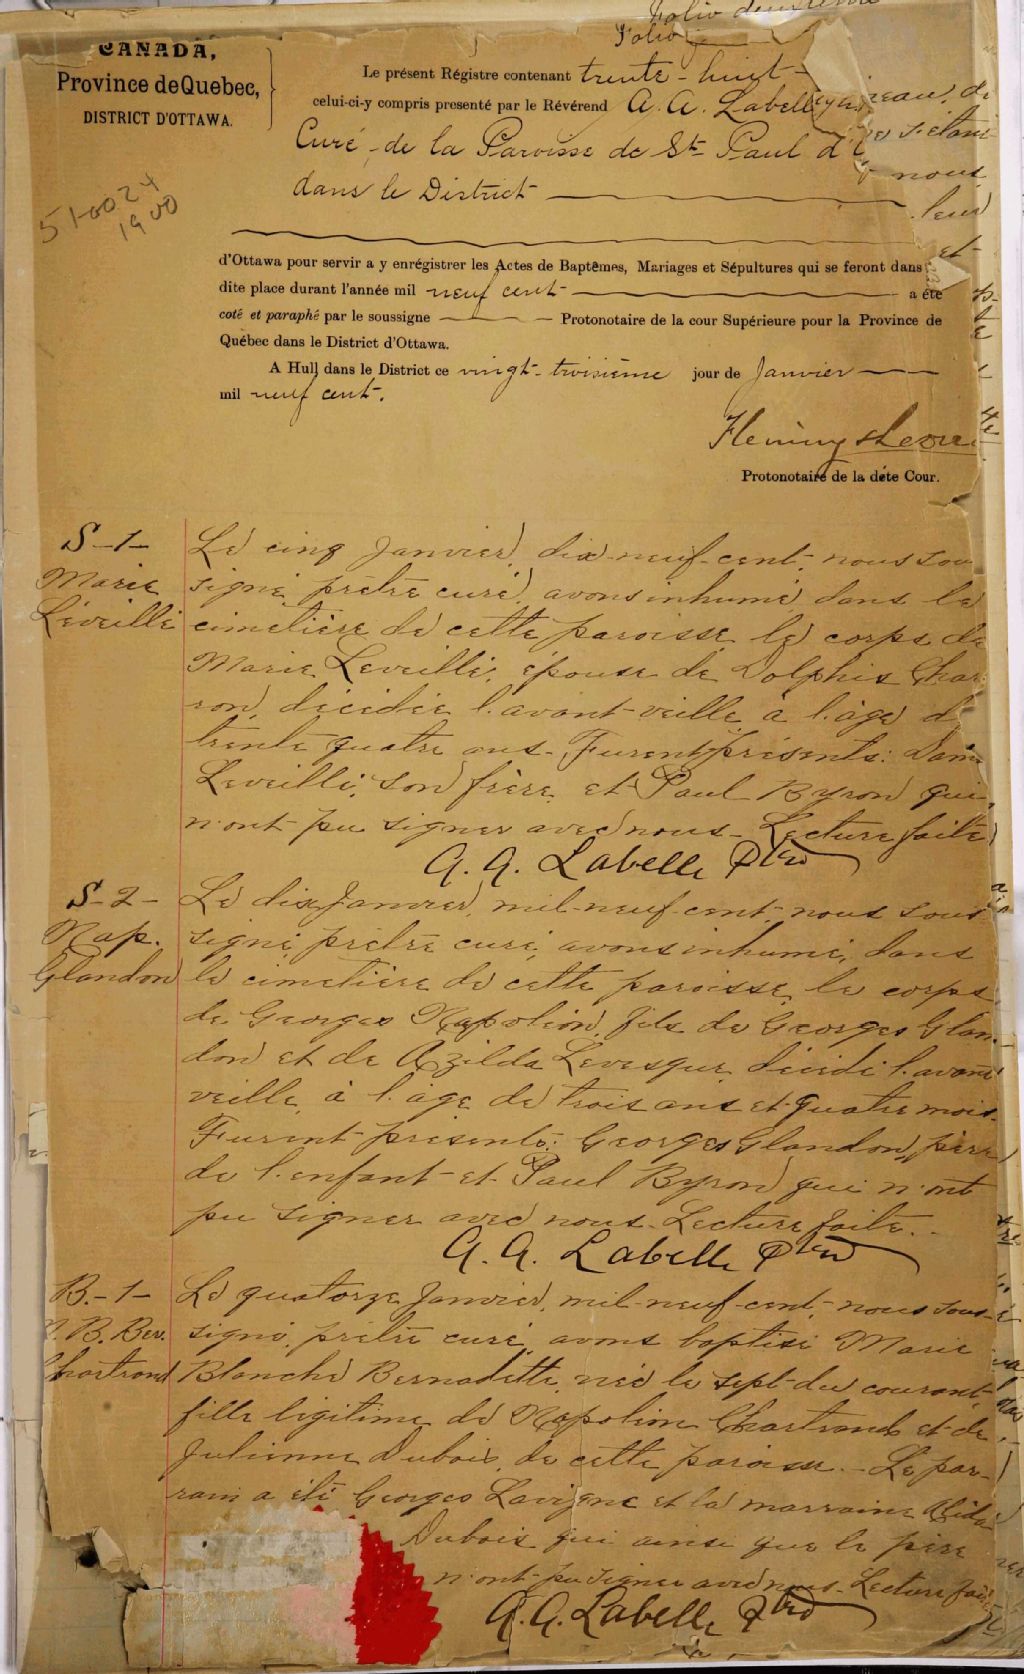 Folio deuxième
Folio
CANADA,
Province de Quebec,
DISTRICT D'OTTAWA.
51-0024
1900
Le présent Régistre contenant trente-huit-
celui-ci-y compris presenté par le Révérend A. A. Labelle
Curé de la Paroisse de St Paul d
dans le District
d'Ottawa pour servir a y enrégistrer les Actes de Baptêmes, Mariages et Sépultures qui se feront dans
dite place durant l'année mil neuf cent a été
coté et paraphé par le soussigne Protonotaire de la cour Supérieure pour la Province de
Québec dans le District d'Ottawa.
A Hull dans le District ce vingt-troisième jour de Janvier
mil neuf cent.
Protonotaire de la déte Cour.
S-1-
Marie
Léveillé
Le cinq Janvier, dix-neuf-cent, nous sous
signé, prêtre curé, avons inhumé dans le
cimetière de cette paroisse le corps de
Marie Leveillé, épouse de Dolphis Char
ron, décédée l'avant-veille à l'âge d
trente quatre ans. Furent présents:
Leveillé, son frère et Paul Byron qui
n'ont pu signer avec nous. Lecture faite
A. A. Labelle Ptre
S-2-
Nap.
Glandon
Le dix Janvier, mil-neuf-cent, nous sous
signé, prêtre curé, avons inhumé, dans
le cimetière de cette paroisse le corps
de Georges Napoléon, fils de Georges Glan-
don et de Azilda Levesque, décédé l'avant
veille, à l'âge de trois ans et quatre mois.
Furent présents: Georges Glandon, père
de l'enfant et Paul Byron qui n'ont
pu signer avec nous. Lecture faite.
A. A. Labelle Ptre
B.-1-
M. B. Ber.
Chartrand
Le quatorze Janvier, mil-neuf-cent, nous sous-
signé, prêtre curé, avons baptisé Marie
Blanche Bernadette, née le sept du courant,
fille légitime de Napoléon Chartrand et de
Julienne Dubois, de cette paroisse. Le par-
rain a été Georges Lavigne et la marraine Alida
Dubois qui ainsi que le père
n'ont pu signer avec nous. Lecture faite
A. A. Labelle Ptre